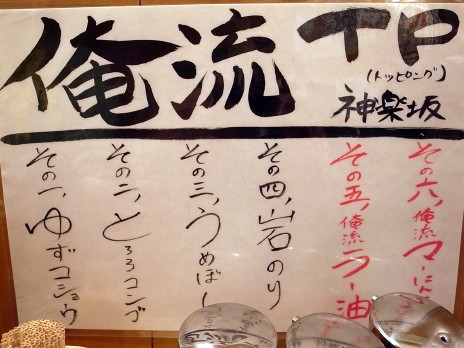 俺流 TP
(トッピング)
神楽坂
その一、ゆずコショウ
その二、とろろコンブ
その三、うめぼし
その四、岩のり
その五、俺流ラー油
その六、俺流マーにん